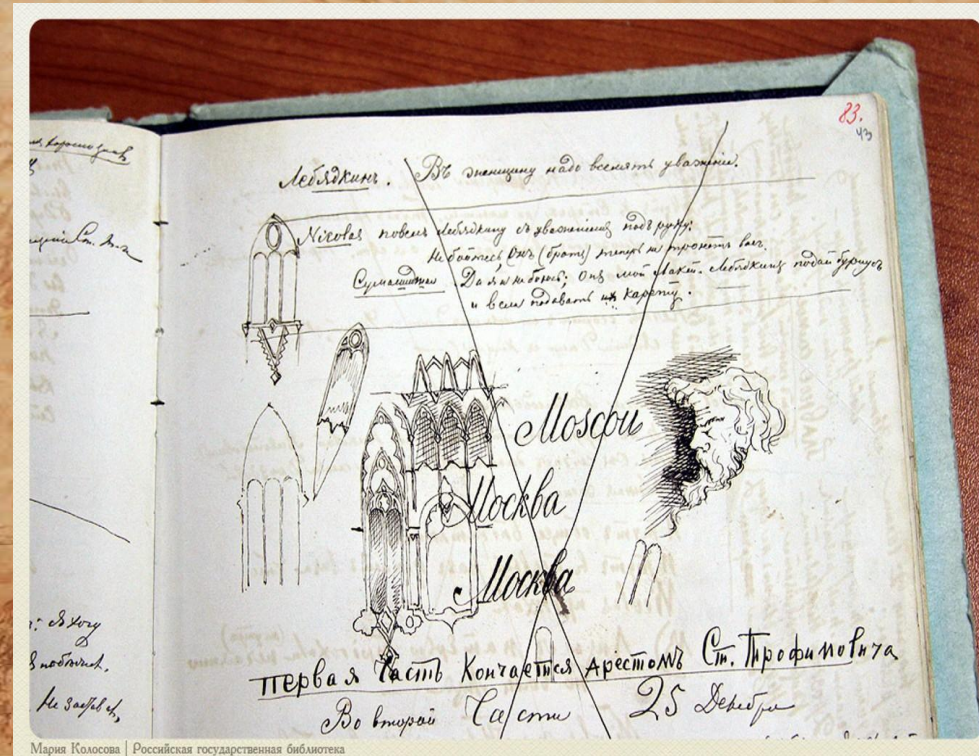 83.
43
Лебядкинъ. Въ женщину надо вселять уваженіе.
Nicolas повелъ Лебядкину съ уваженіемъ подъ руку:
Не бойтесь, Онъ (братъ) теперь не тронетъ васъ.
Сумашедшая. Да я и не боюсь; онъ мой лакей. Лебядкинъ подай бурнусъ
и вели подавать карету.
Moscou
Москва
Москва
первая Часть Кончается Арестомъ Ст. Трофимовича
Во второй Части 25 Декабря
Я хочу
Не
Мария Колосова | Российская государственная библиотека